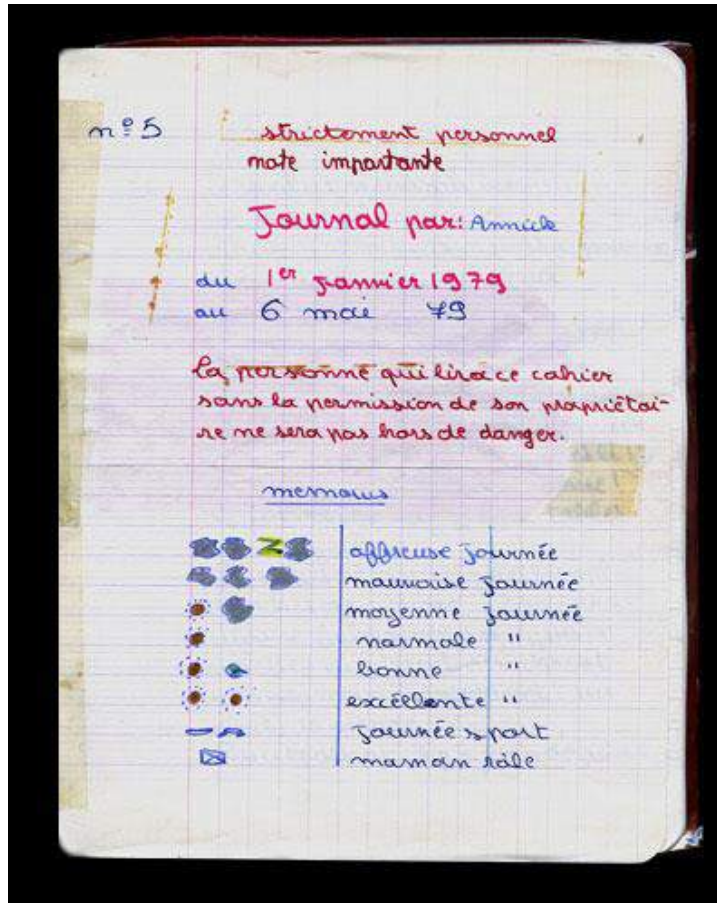 nº 5
strictement personnel
note importante
Journal par: Annick
du 1er Janvier 1979
au 6 mai 79
la personne qui lira ce cahier
sans la permission de son propriétai-
re ne sera pas hors de danger.
affreuse journée
mauvaise journée
moyenne journée
normale "
bonne "
excéllente "
Journée sport
maman râle